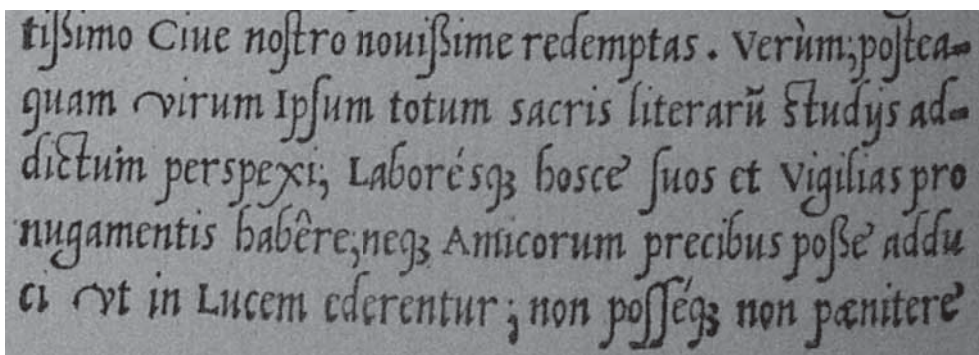 tißimo Ciue noſtro nouißime redemptas. Verùm; poſtea-
quam virum Ipſum totum sacris literarũ ſtudijs ad-
dictum perspexi; Laborésqꝫ hosce ſuos et Vigilias pro
nugamentis habêre; neqꝫ Amicorum precibus poße addu
ci vt in Lucem ederentur; non poſſéqꝫ non pænitere